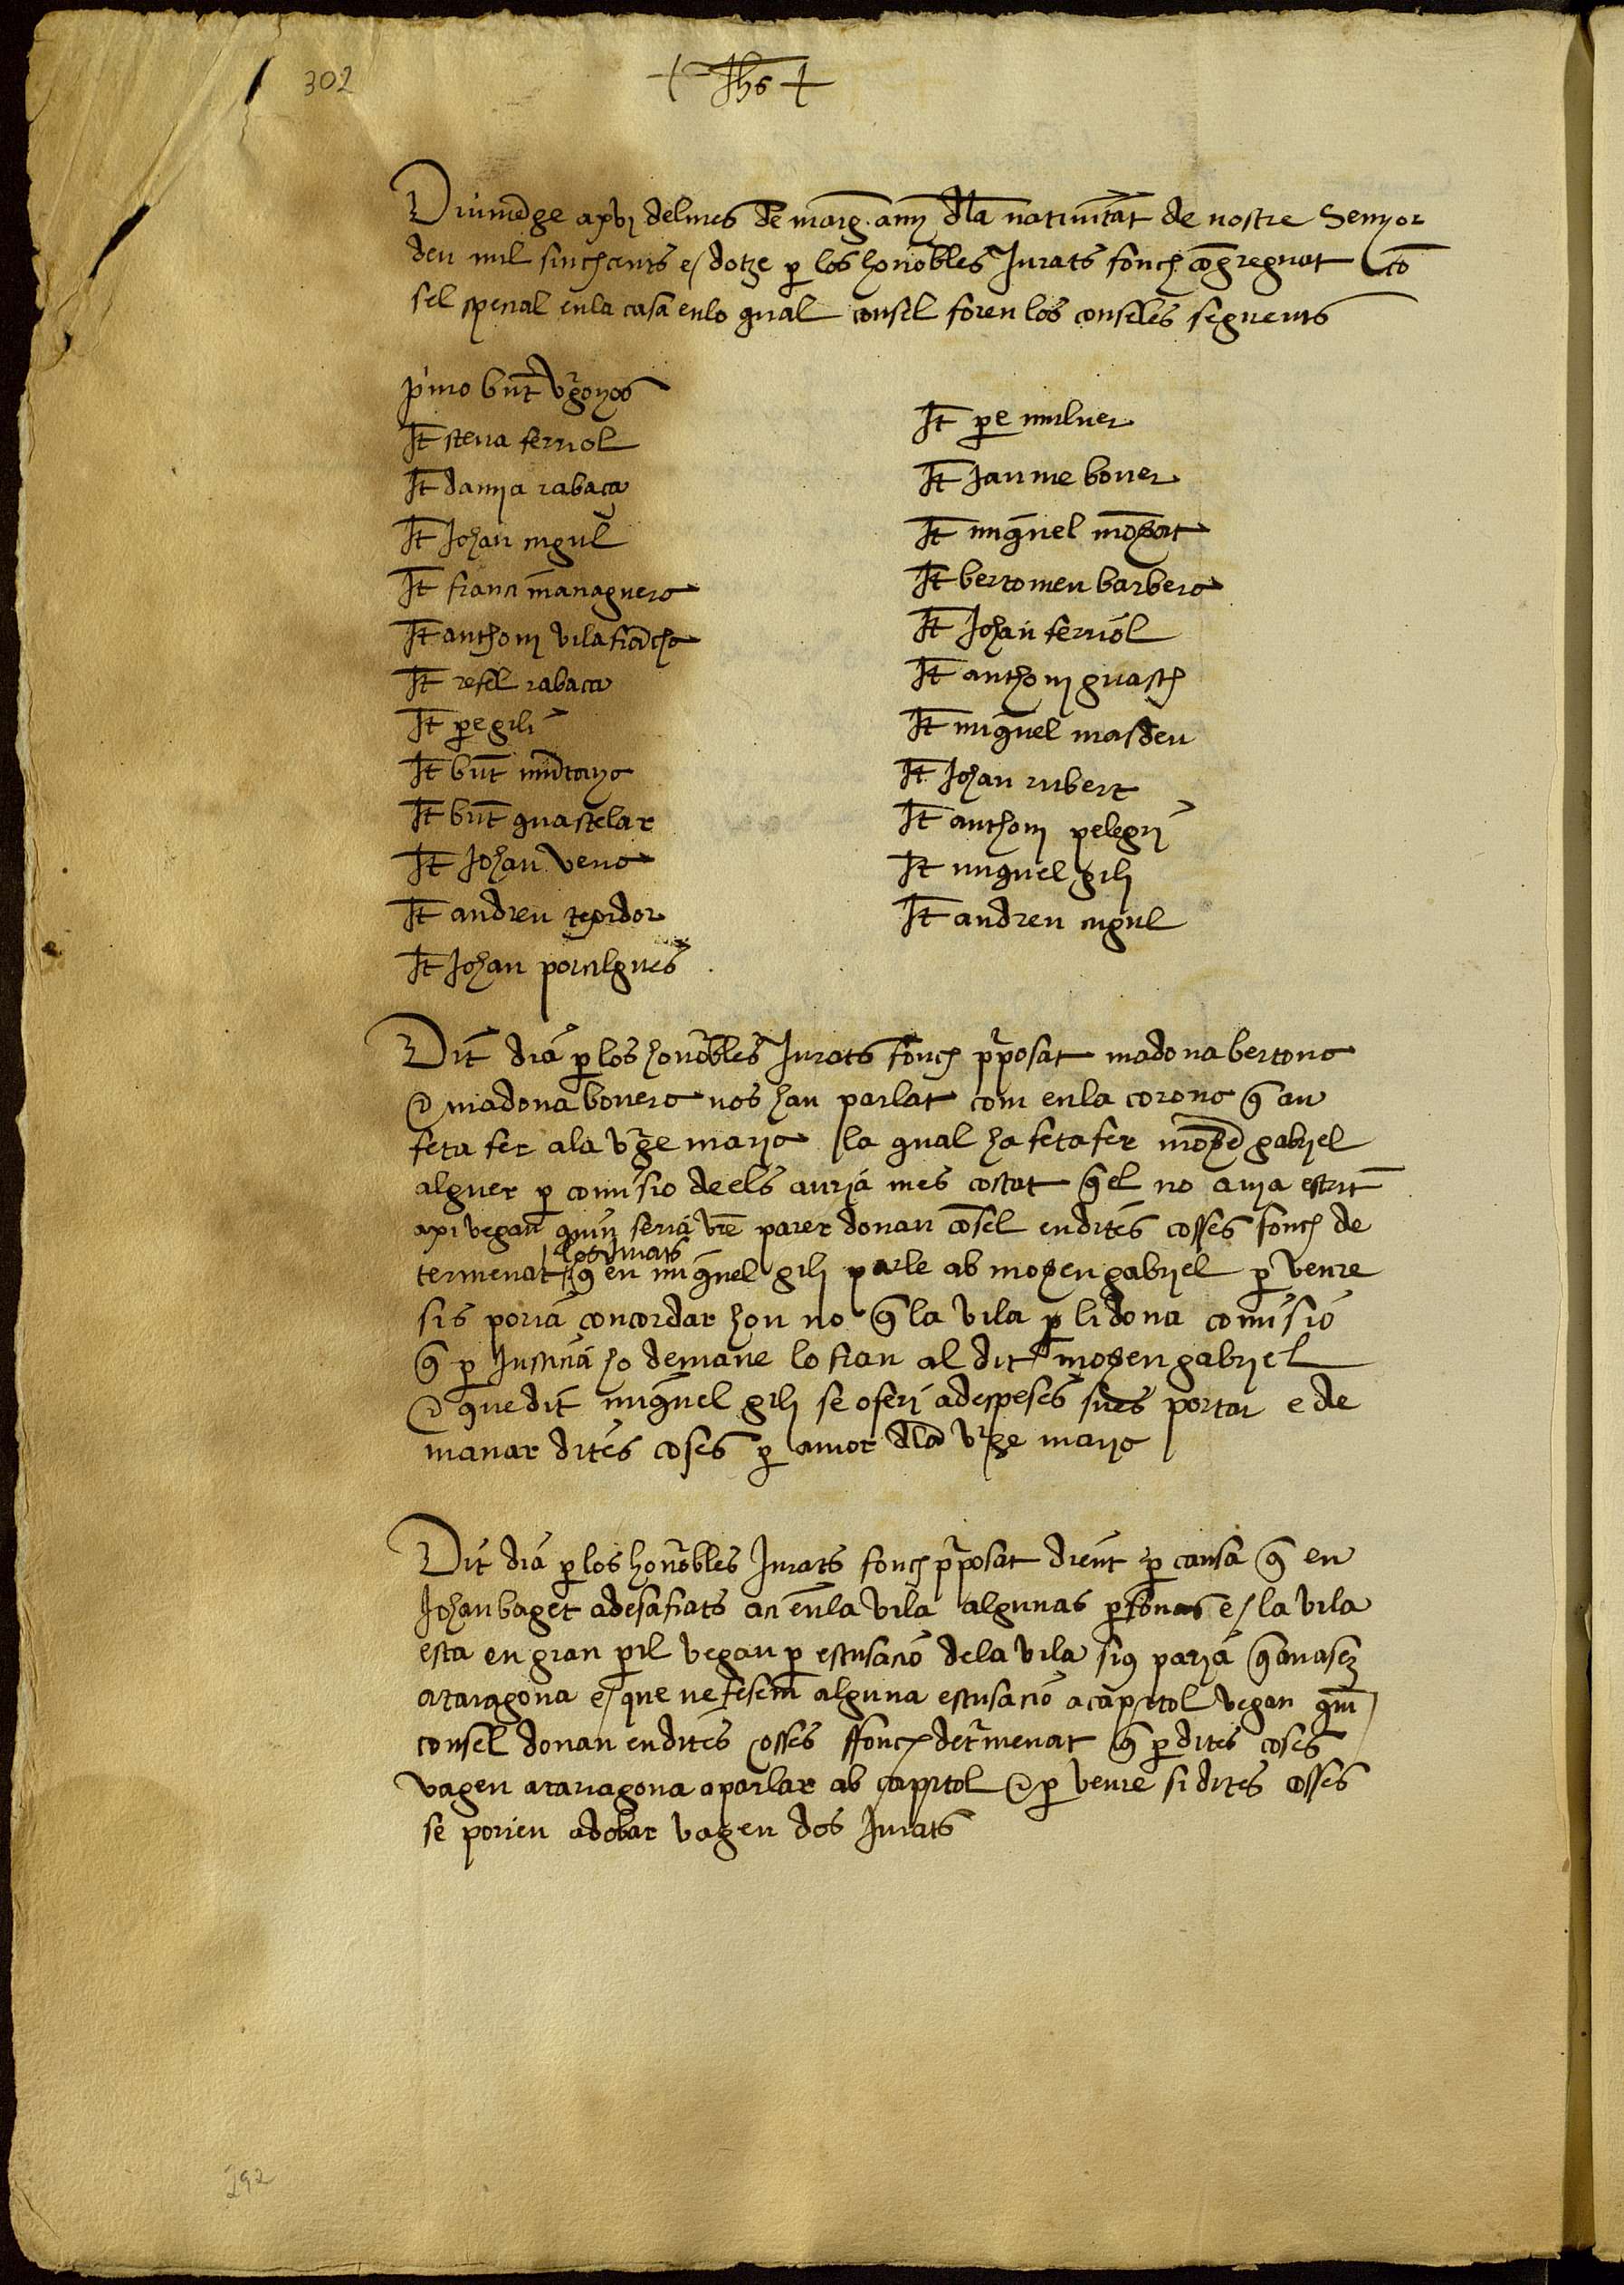 302
+ Jhs +
Diumēge a xvj del mes de març any dla natiuitat de nostre Senyor
deu mil sinchcents e dotze p los honorbles Jurats fonch cōgreguat cō
sel spesial en la casa en lo qual consel foren los conseles seguents
pimo bnt vrgonyos
It steua ferriol
It damja rabaça
It Johan cugul
It franci managuera
It anthonj vilafrācha
It refel rabaca
It pe gili
It bnt mūtanya
It bnt guastelar
It Johan vena
It andreu texidor
It Johan porcilgues
It pe muluer
It Jaume bouer
It miguel mōsat
It bertomeu barbera
It Johan ferriol
It anthonj guasch
It miguel masdeu
It Johan rubert
It anthonj pelegrj
It miguel gilj
It andreu cugul
Dit dia p los honorbles Jurats fonch pposat madona bertona
e madona bouera nos han parlat com en la corona q an
feta fer ala vrge marja la qual ha feta fer mosē gabriel
alguer p comisio de els aurja mes costat q el no auja escrit
axi vegan quin seria vre parer donan cōsel en dites cosses fonch de
los jurats
termenat q en miguel gilj parle ab mosen gabriel p veure
sis poria concordar hou no q la vila p li dona comisio
q p Justicia ho demane lo frau al dit mosen gabriel
e que dit miguel gilj se oferj a despeses sues portar e de
manar dites coses p amor dla vrge marja
Dit dia p los honorbles Jurats fonch pposat dient p causa q en
Johan baget a desafiats aci en la vila algunas psonas e la vila
esta en gran pil vegan p escusacio de la vila sius parja q anasez
a taragona e que ne fesem alguna escusacio a capitol vegan quin
consel donan en dites cosses ffonch detrmenat q p dites coses
vagen a tarragona a parlar ab capitol e p veure si dites cosses
se porien adobar vagen dos Jurats
292